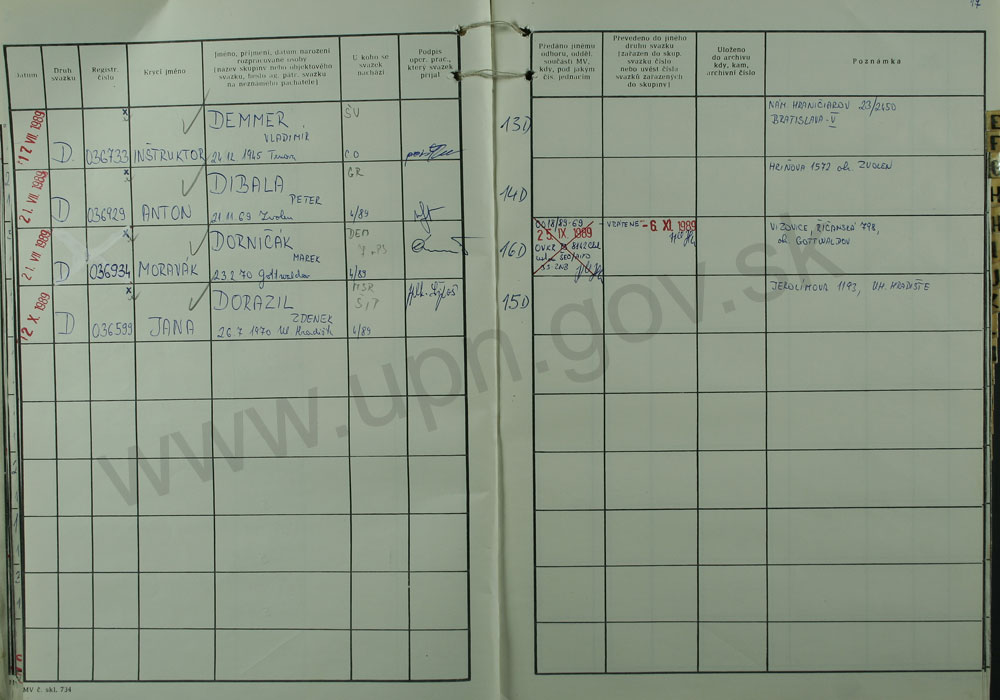 17
Datum
Druh svazku
Registr. číslo
Krycí jméno
Jméno, příjmení, datum narození
rozpracované osoby
[název skupiny nebo objektového
svazku, heslo ag. pátr. svazku
na neznámého pachatele]
U koho se
svazek
nachází
Podpis
oper. prac.,
který svazek
přijal
Předáno jinému
odboru, odděl.
součásti MV,
kdy, pod jakým
čís. jednacím
Převedeno do jiného
druhu svazku
[zařazen do skup.
svazku číslo
nebo uvést čísla
svazků zařazených
do skupiny]
Uloženo
do archivu
kdy, kam,
archivní číslo
Poznámka
12 VII. 1989
D
x
036733
INŠTRUKTOR
DEMMER
VLADIMÍR
24.12 1945
ŠV
13D
NÁM. HRANIČIAROV 23/2450
BRATISLAVA-V
21. VII. 1989
D
x
036929
ANTON
DIBALA
PETER
21 11 69 Zvolen
GR
4/89
14D
HRIŇOVA 1572 ok. ZVOLEN
21. VII 1989
D
x
036934
MORAVÁK
DORNIČÁK
MAREK
23 2 70 Gottwaldov
DEM
4/89
16D
25. IX. 1989
VRÁTENÉ - 6. XI. 1989
VIZOVICE, ŘÍČANSKÁ 798,
ok. GOTTWALDOV
12 X. 1989
D
x
036599
JANA
DORAZIL
ZDENEK
26.7 1970 Uh Hradiště
4/89
15D
JEROLÍMOVA 1193, UH. HRADIŠTE
MV č. skl. 734
www.upn.gov.sk